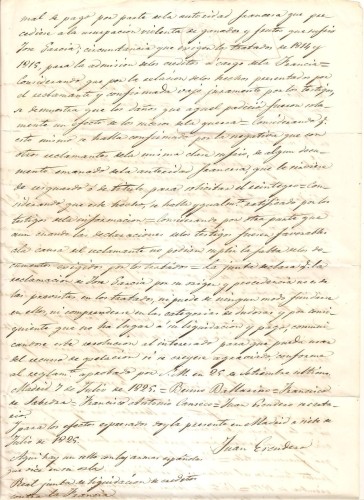 mal de pago por parte de la autoridad francesa que pre-
cediera a la ocupacion violenta de ganados y efectos que sufrio
Jose Garcia; circunstancia que exigen los tratados de 1814 y
1815, para la admision de los creditos a cargo de la Francia =
Considerando que por la relacion de los hechos presentada por
el reclamante y confirmada por los testigos,
se demuestra que los daños que aquel padeció fueron sola-
mente un efecto de los males de la guerra = Considerando q.e
esto mismo se halla confirmado por la negativa que con
otros reclamantes de la misma clase sufrio, de algun docu-
mento emanado de la autoridad francesa, que le sirviese
de resguardo ó de titulo para solicitar el reintegro = Con-
siderando que este hecho, se halla ratificado por los
testigos de la informacion = Considerando por otra parte que
aun cuando las declaraciones de los testigos fuesen favorables
á la causa del reclamante no podian suplir la falta de los do-
cumentos exigidos por los tratados = La junta declara q.e la
reclamacion de Jose Garcia por su origen y procedencia no es de
las prescritas en los tratados, ni puede de ningun modo fundarse
en ellos, ni comprenderse en las categorias de , y por consi-
guiente que no ha lugar a su liquidacion y pago, comuni-
candose esta resolucion al interesado para que pueda usar
del recurso de apelacion si se creyese agraviado, conforme
al reglam.to aprobado por S.M. en 25 de Setiembre ultimo
Madrid 7 de Julio de 1825 = = Francisco
de = Francisco Antonio = Juan Escudero secreta-
rio =
Y para los efectos expresados doy la presente en Madrid a siete de
Julio de 1825.
Juan Escudero
Aqui hay un sello con las armas españolas
que dice en su orla
Real junta de liquidacion de creditos
contra la Francia